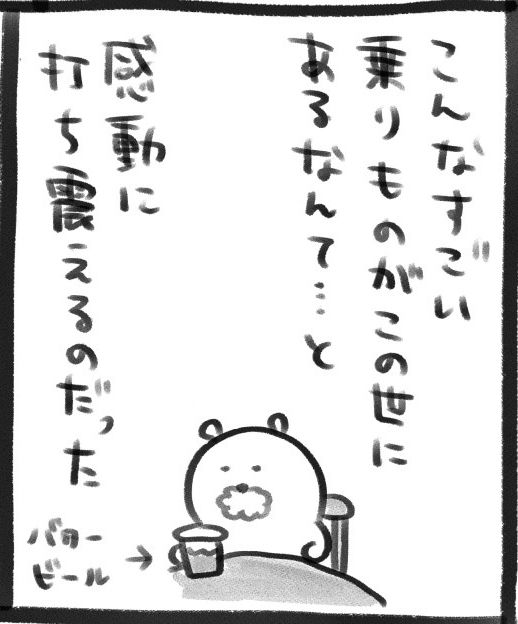 こんなすごい
乗りものがこの世に
あるなんて…と
感動に
打ち震えるのだった
バター
ビール